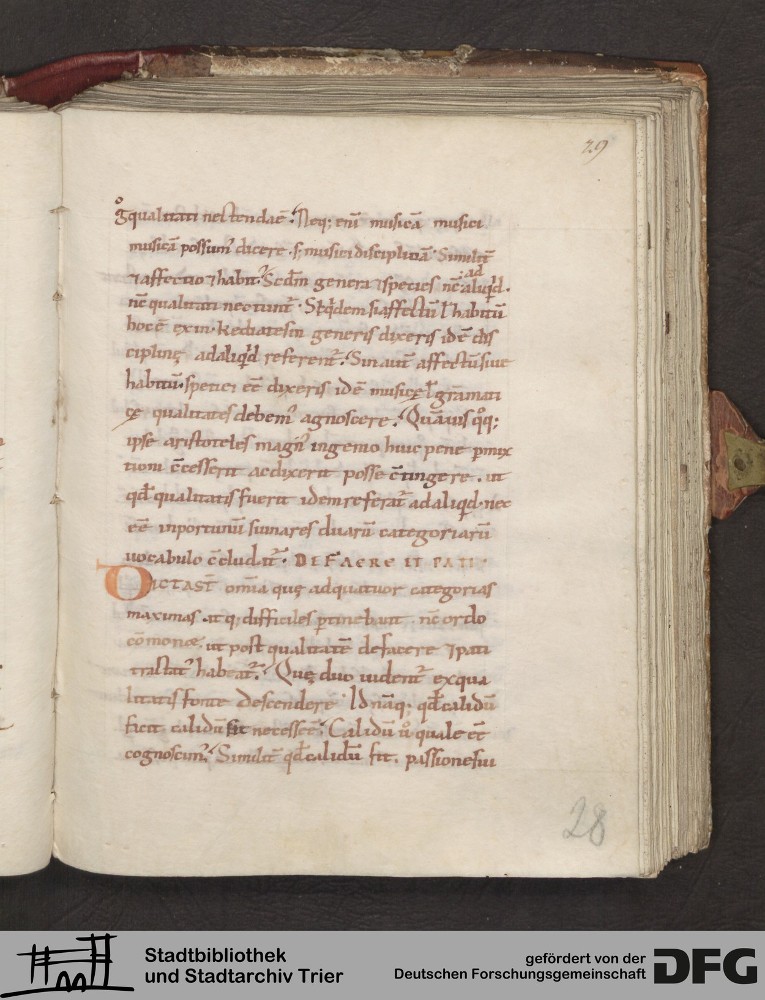 29
g qualitati nectenda ē. Neq; eni musicā musici
musicā possum' dicere. s; musici disciplinā. Similit̄
⁊ affectio ⁊ habit'. Scdm genera ⁊ species nc̄ ad aliqd.
nc̄ qualitati nectunt̄. Siqdem si affectū ł habitū
hoc ē exin. ke diatesin generis dixeris idē dis
ciplinę ad aliqd referent̄. Sin autē affectū siue
habitū. speciei eē dixeris idē musicę ł gramati
cę qualitates debem' agnoscere. Quāuis qq;
ipse aristoteles magn' ingenio huic pene pmix
tioni c̄cesserit ac dixerit posse c̄tingere. ut
qd qualitatis fuerit idem referat̄ ad aliqd. nec
eē inportunū si una res duarū categoriarū
uocabulo c̄cludat̄. DE FACERE ET PATI.
DICTA SŦ omīa quę ad quatuor categorias
maximas atq; difficiles ptinebant. nc̄ ordo
cōmonœ. ut post qualitatē de facere ⁊ pati
tractat' habeat̄. Quę duo uident̄ ex qua
litatis fonte descendere. Id nāq; qd calidū
ficit calidū fit necesse ē. Calidū ů quale eē
cognoscim'. Similit̄ qd calidū fit. passione sui
28
Stadtbibliothek
und Stadtarchiv Trier
gefördert von der
Deutschen Forschungsgemeinschaft
DFG